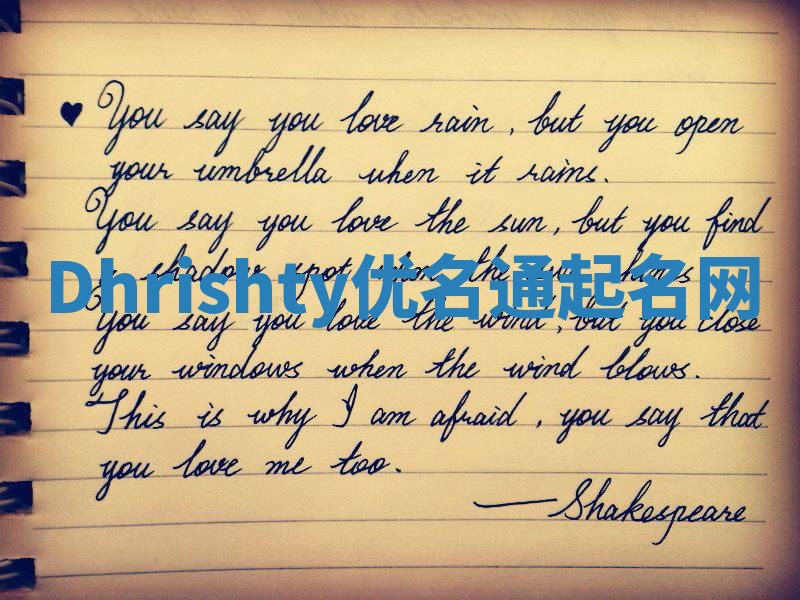 ♥ You say you love rain, but you open
your umbrella when it rains.
You say you love the sun, but you find
a shadow spot when the sun shines
Dhrishty优名通起名网
You say you love the wind, but you close
your windows when the wind blows.
This is why I am afraid, you say that
you love me too.
—Shakespeare